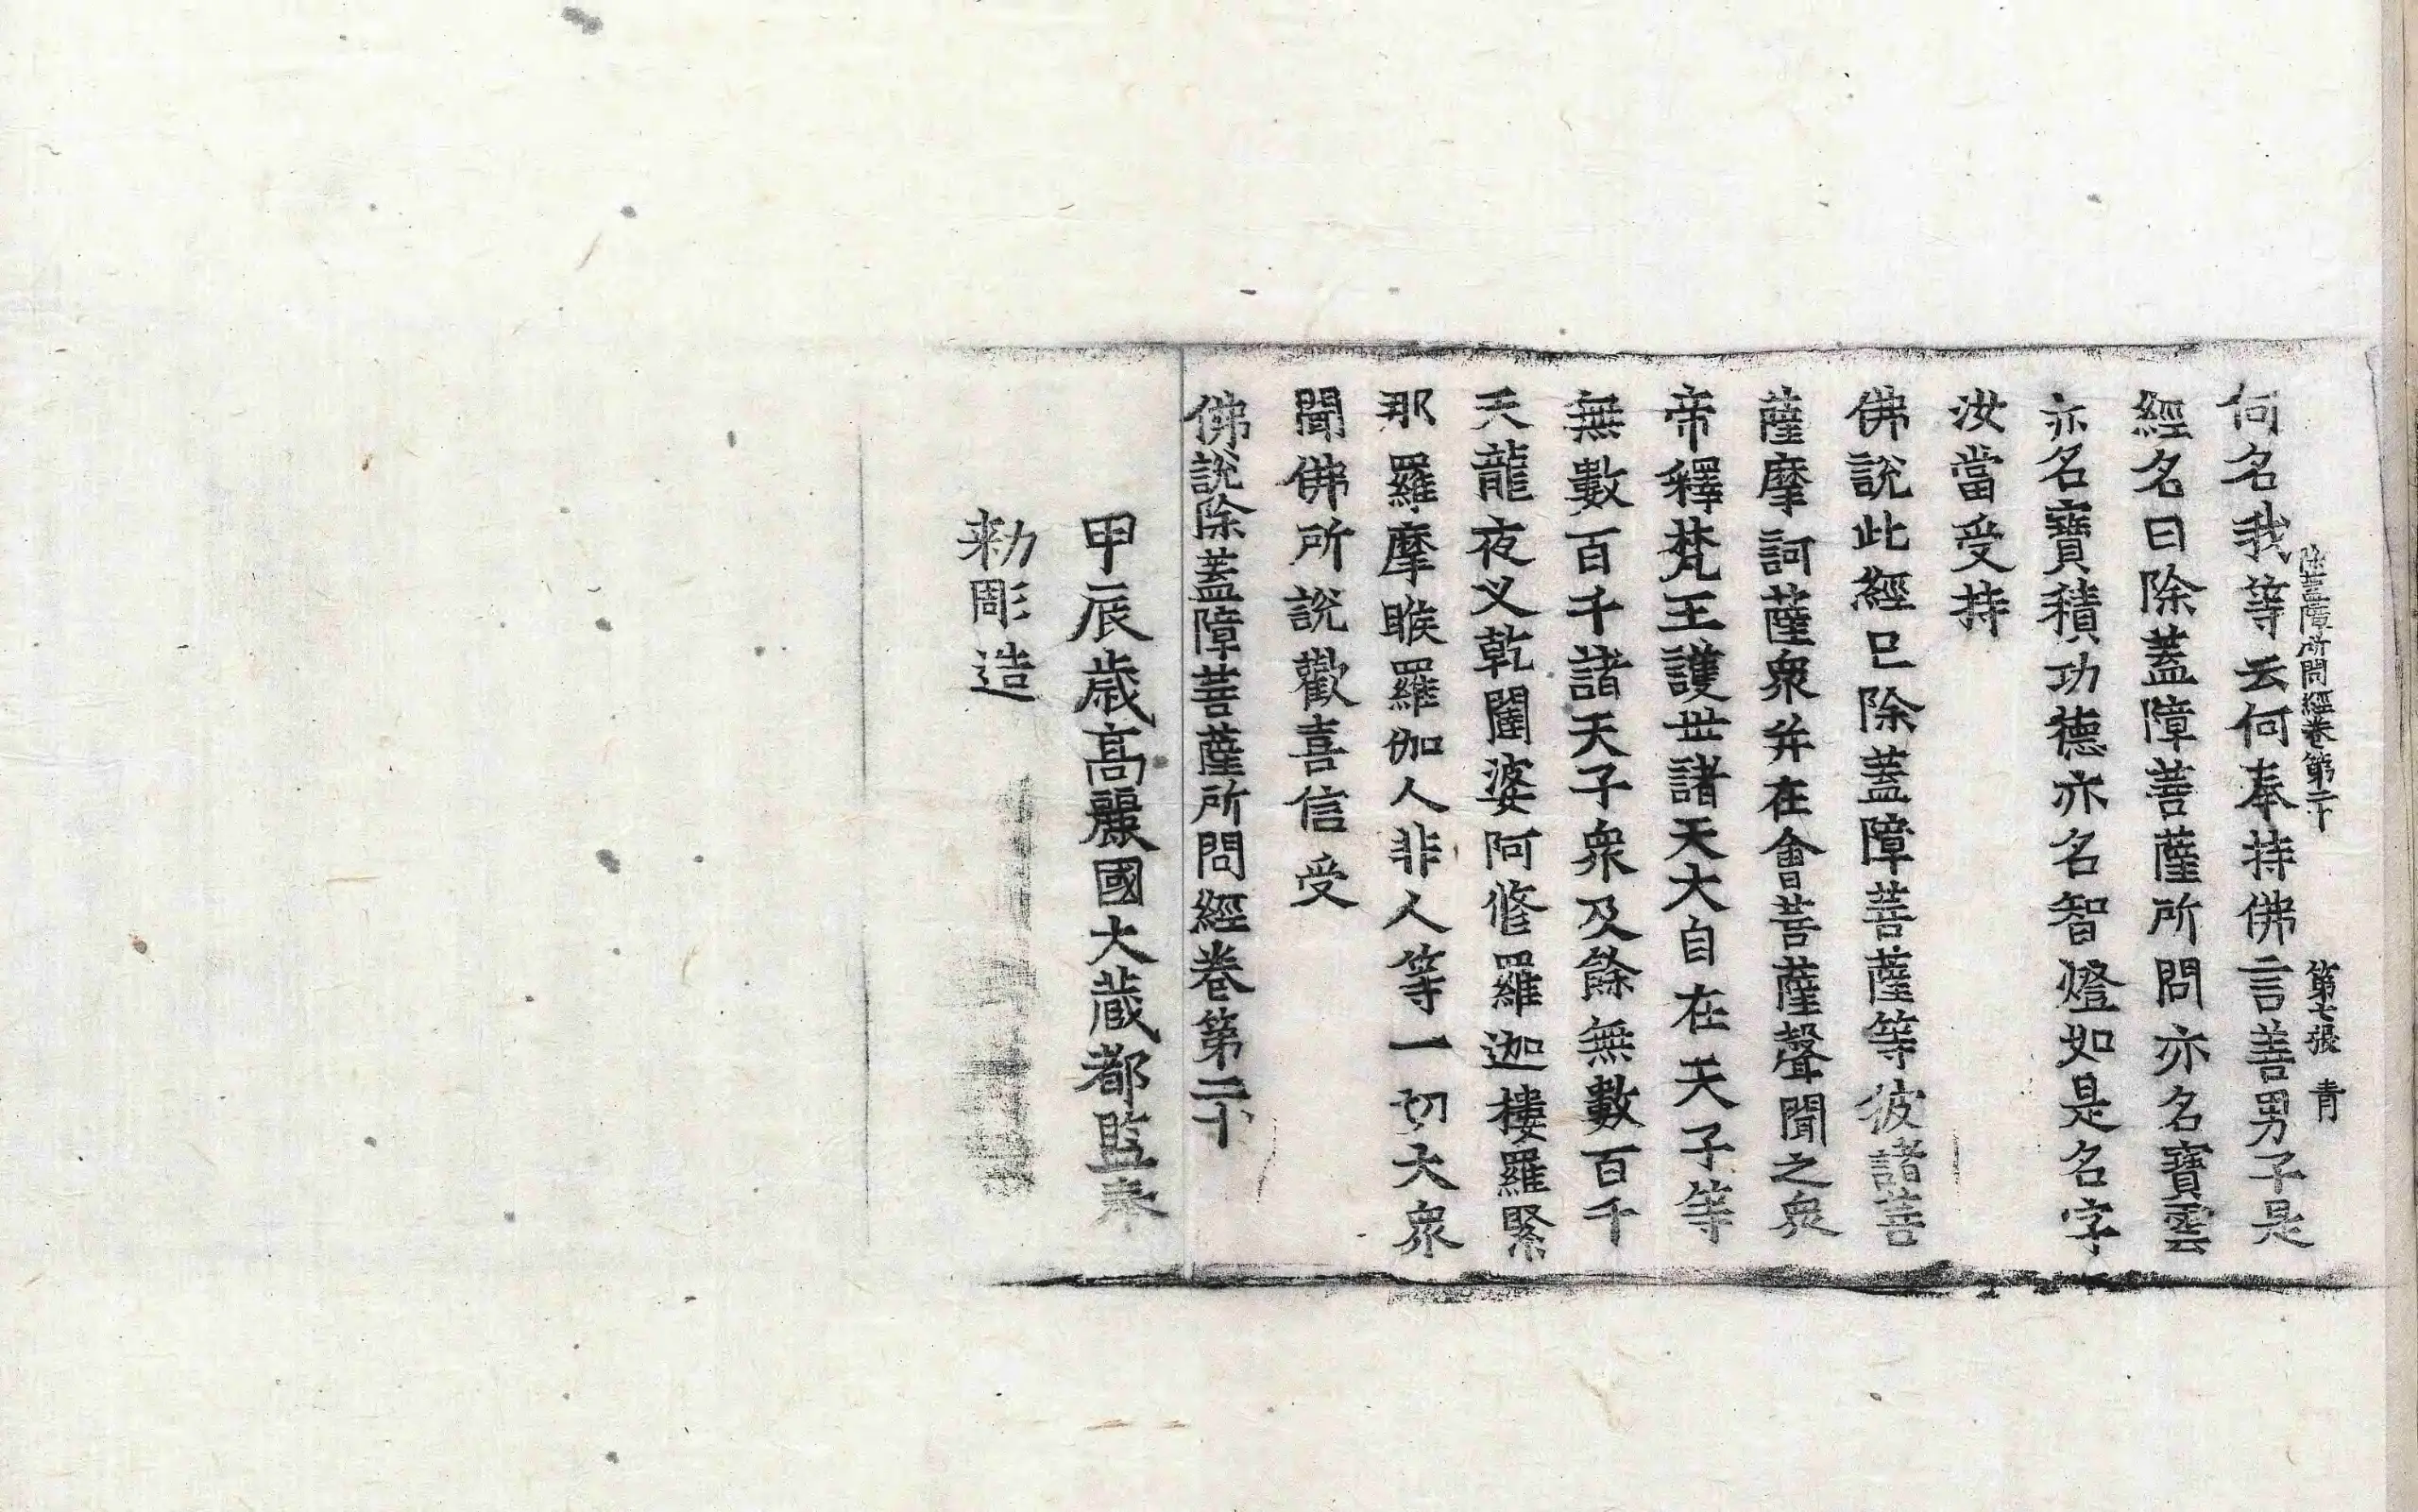 除蓋障所問經卷第二十 第七張 青
何名我等云何奉持佛言善男子是
經名曰除蓋障菩薩所問亦名寶雲
亦名寶積功德亦名智燈如是名字
汝當受持
佛說此經已除蓋障菩薩等彼諸菩
薩摩訶薩衆并在會菩薩聲聞之衆
帝釋梵王護世諸天大自在天子等
無數百千諸天子衆及餘無數百千
天龍夜叉乾闥婆阿修羅迦樓羅緊
那羅摩睺羅伽人非人等一切大衆
聞佛所說歡喜信受
佛說除蓋障菩薩所問經卷第二十
甲辰歲高麗國大藏都監奉
勑彫造